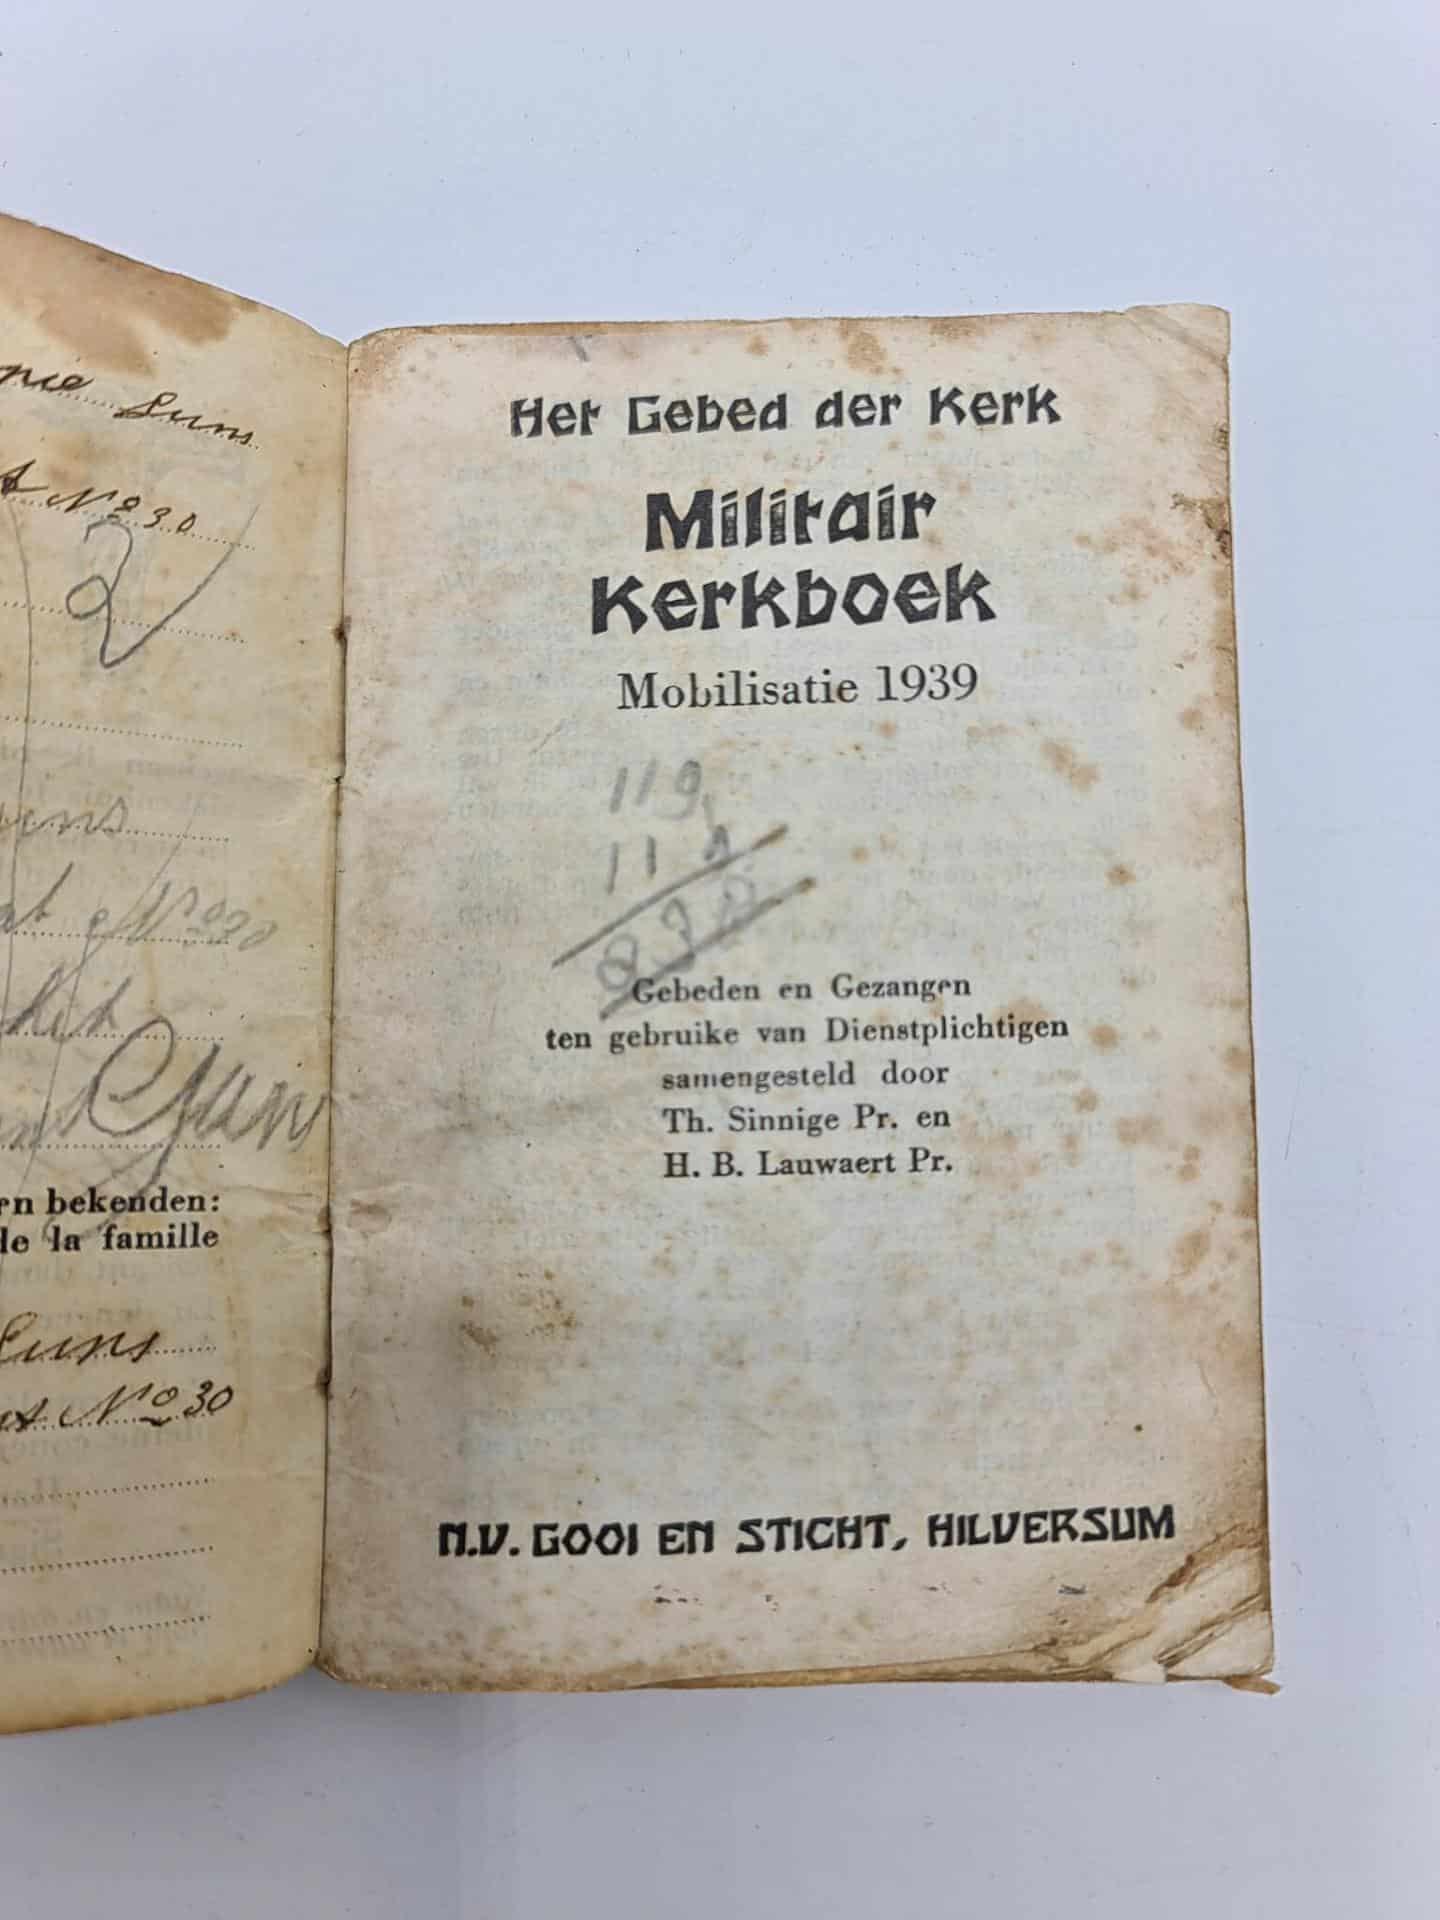 Luns
No 30
2
No 30
rn bekenden:
de la famille
Luns
No 30
Het Gebed der Kerk
Militair
Kerkboek
Mobilisatie 1939
119
11
Gebeden en Gezangen
ten gebruike van Dienstplichtigen
samengesteld door
Th. Sinnige Pr. en
H. B. Lauwaert Pr.
N.V. GOOI EN STICHT, HILVERSUM